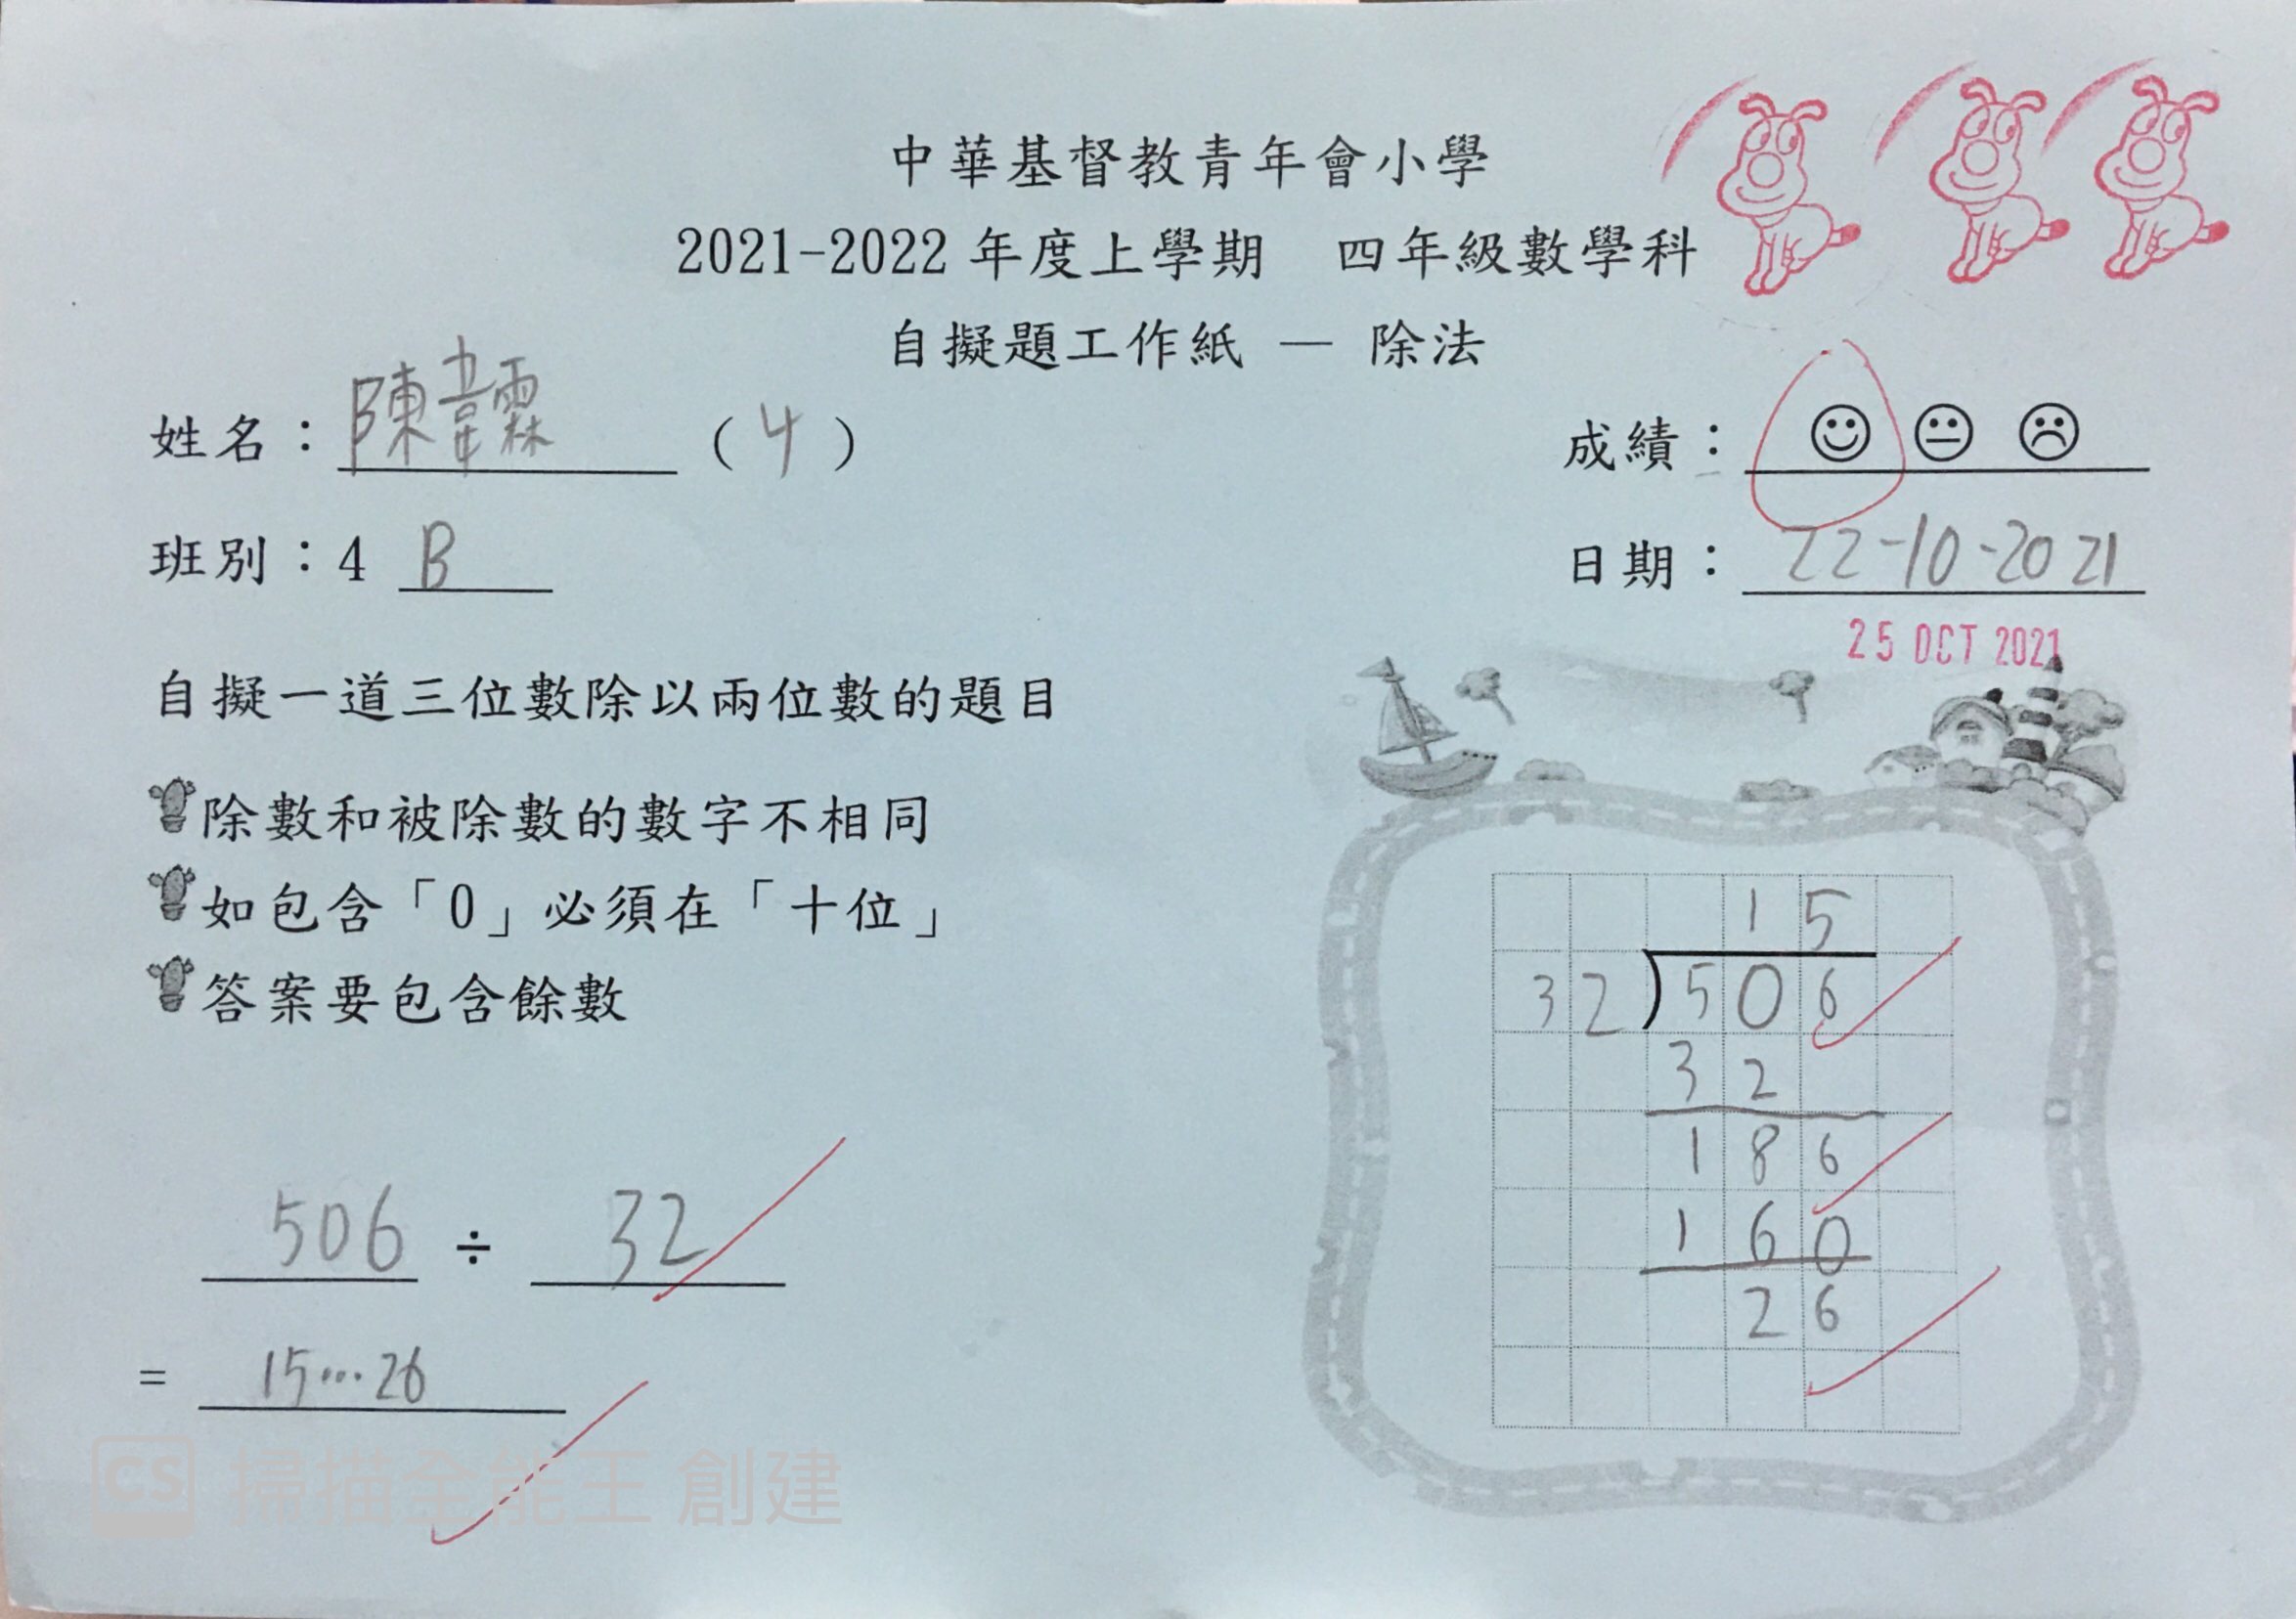 中華基督教青年會小學
2021-2022 年度上學期 四年級數學科
自擬題工作紙 — 除法
姓名：陳韋霖 (4) 成績：
班別：4 B 日期：22-10-2021
25 OCT 2021
自擬一道三位數除以兩位數的題目
除數和被除數的數字不相同
如包含「0」必須在「十位」
答案要包含餘數
506 ÷ 32
= 15…26
15
32)506
32
186
160
26
CS 掃描全能王 創建